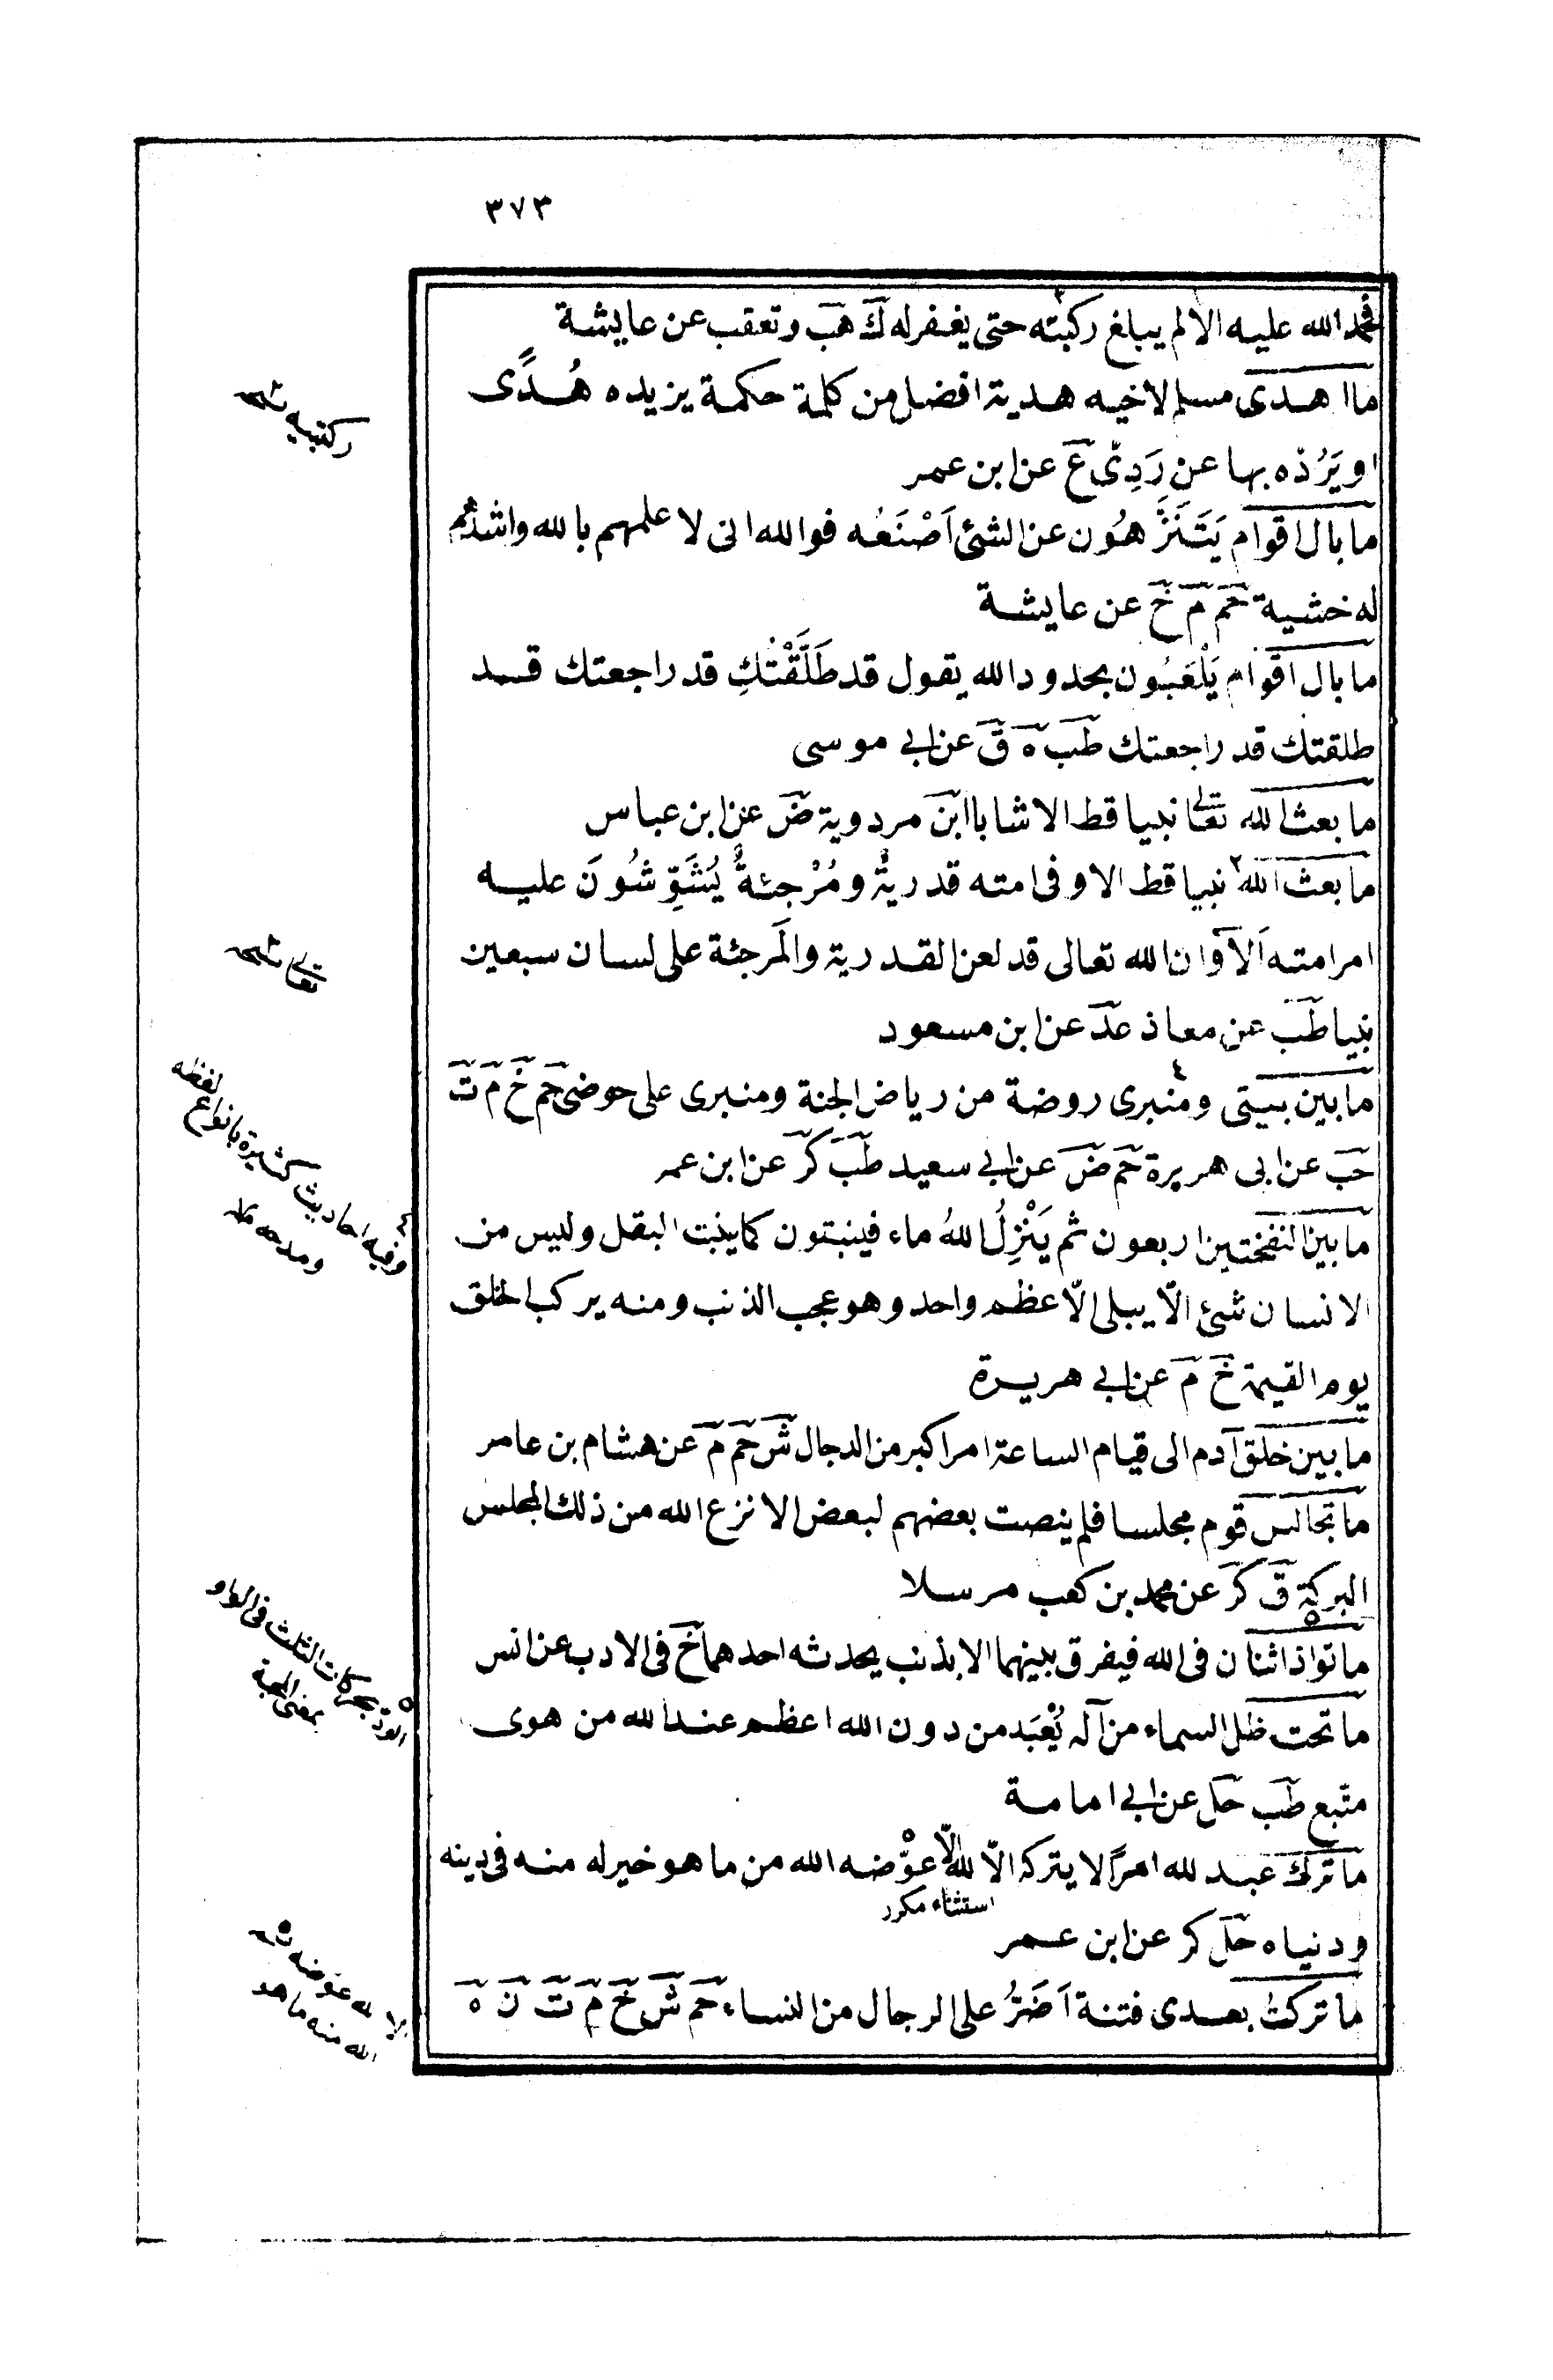 ٣٧٣
فحمد الله عليه الا لم يبلغ ركبته حتى يغفر له ك هب وتعقب عن عايشة
ما اهدى مسلم لاخيه هدية افضل من كلمة حكمة يزيده هُدًى
او يَرُدّه بها عن رَدِىّ ع عن ابن عمر
ما بال اقوام يَتَنَزَّهُون عن الشئ اَصْنَعُه فوالله انى لاعلمهم بالله واشدّهم
له خشية حم م خ عن عايشة
ما بال اقوام يَلْعَبُون بحدود الله يقول قد طَلَّقْتُكِ قد راجعتك قد
طلقتك قد راجعتك طب ه ق عن ابى موسى
ما بعث الله تعالى نبيا قط الا شابا ابن مردوية ض عن ابن عباس
ما بعث الله نبيا قط الا وفى امته قدريةٌ ومُرْجئةٌ يُشَوِّشُونَ عليه
امر امته اَلآ وان الله تعالى قد لعن القدرية والمرجئة على لسان سبعين
نبيا طب عن معاذ عد عن ابن مسعود
ما بين بيتى ومنبرى روضة من رياض الجنة ومنبرى على حوضى حم خ م ت
حب عن ابى هريرة حم ض عن ابى سعيد طب كر عن ابن عمر
ما بين النفختين اربعون ثم يَنْزِلُ اللهُ ماء فينبتون كما ينبت البقل وليس من
الانسان شئ الّا يبلى الّا عظم واحد وهو عجب الذنب ومنه يركب الخلق
يوم القيمة خ م عن ابى هريرة
ما بين خلق آدم الى قيام الساعة امر اكبر من الدجال ش حم م عن هشام بن عامر
ما تجالس قوم مجلسا فلم ينصت بعضهم لبعض الا نزع الله من ذلك المجلس
البركة ق كر عن محمد بن كعب مرسلا
ما تواذ اثنان فى الله فيفرق بينهما الا بذنب يحدثه احدهما خ فى الادب عن انس
ما تحت ظل السماء من آله يُعْبَد من دون الله اعظم عند الله من هوى
متبع طب حل عن ابى امامة
ما ترك عبد لله امرًا لا يتركه الّا لله الّا عوّضه الله من ما هو خير له منه فى دينه
استثناء مكرر
ودنياه حل كر عن ابن عمر
ما تركتُ بعدى فتنة اَضَرُّ على الرجال من النساء حم ش خ م ت ن ه
ركبتيه نسخه
تعالى نسخه
٤ وفيه احاديث كثيرة بانواع لفظه
ومدحه
٥ الودّ بحركات الثلث فى الواو
بمعنى المحبة
الا لله عوضه
الله منه ما هو